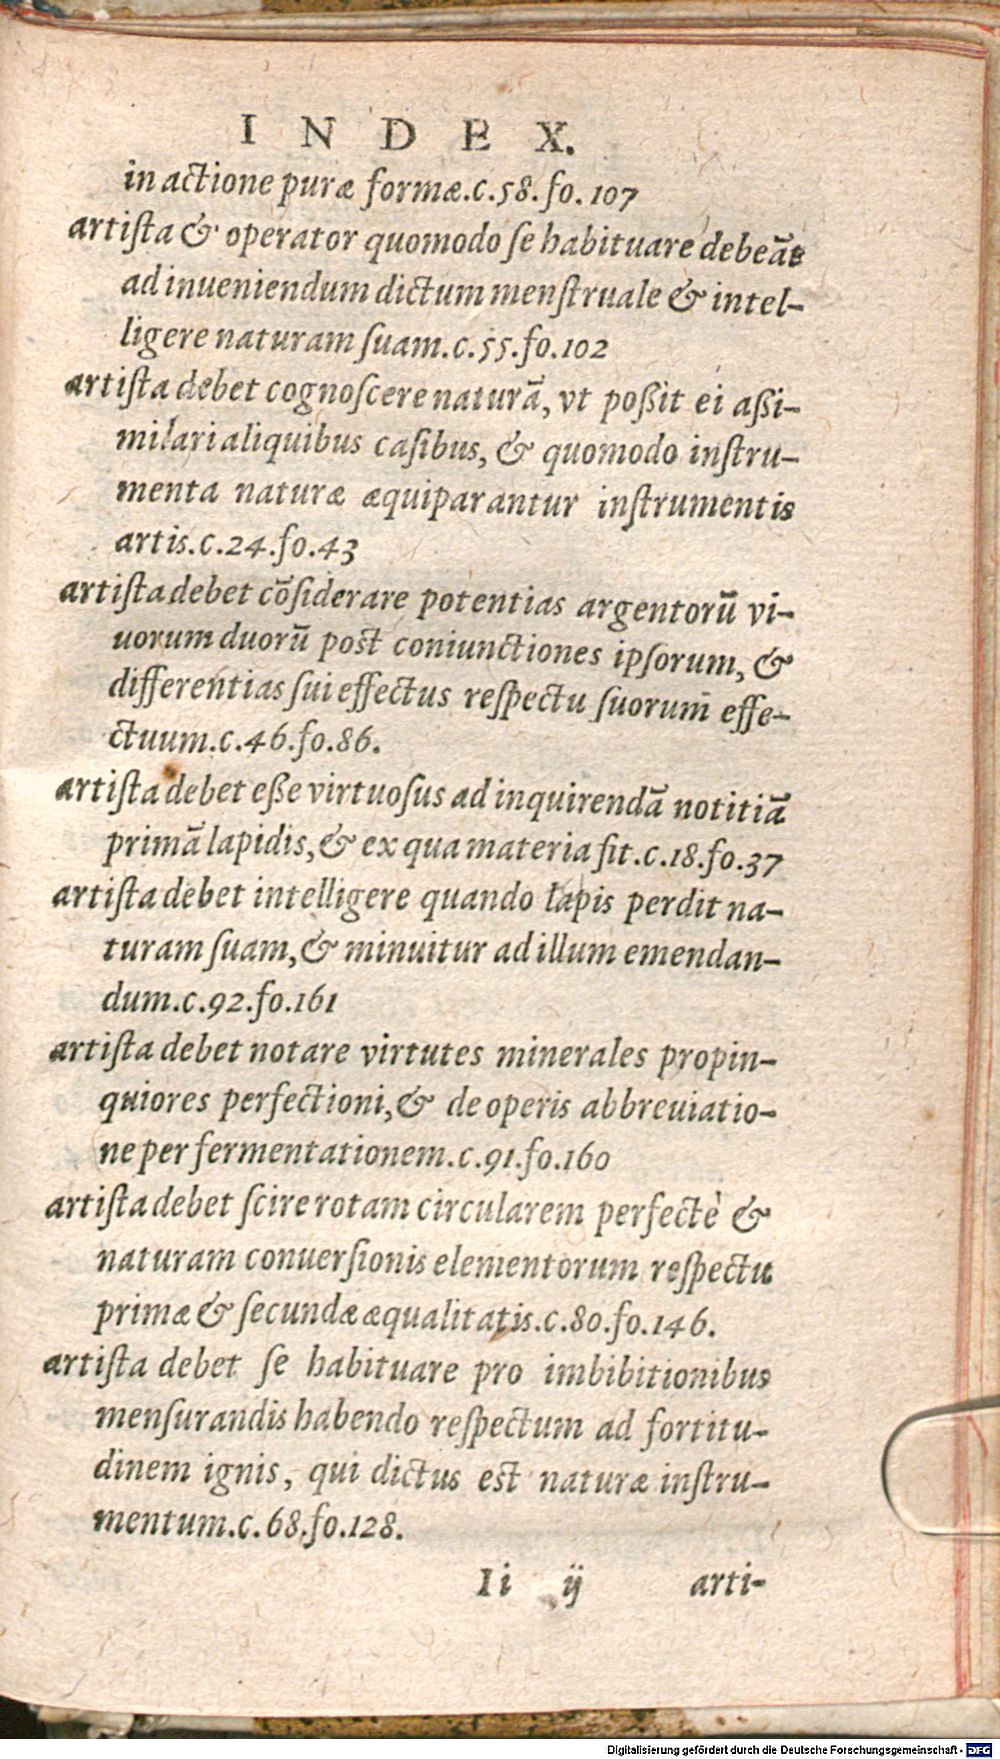 INDEX.
in actione puræ formæ.c.58.fo.107
artiſta & operator quomodo ſe habituare debeāt
ad inueniendum dictum menſtruale & intel-
ligere naturam ſuam.c.55.fo.102
artiſta debet cognoſcere naturā, vt poßit ei aßi-
milari aliquibus caſibus, & quomodo inſtru-
menta naturæ æquiparantur inſtrumentis
artis.c.24.fo.43
artiſta debet cōſiderare potentias argentorū vi-
uorum duorū post coniunctiones ipſorum, &
differentias ſui effectus reſpectu ſuorum effe-
ctuum.c.46.fo.86.
artiſta debet eße virtuoſus ad inquirendā notitiā
primā lapidis, & ex qua materia ſit.c.18.fo.37
artiſta debet intelligere quando lapis perdit na-
turam ſuam, & minuitur ad illum emendan-
dum.c.92.fo.161
artiſta debet notare virtutes minerales propin-
quiores perfectioni, & de operis abbreuiatio-
ne per fermentationem.c.91.fo.160
artiſta debet ſcire rotam circularem perfectè &
naturam conuerſionis elementorum reſpectu
primæ & ſecundæ æqualitatis.c.80.fo.146.
artiſta debet ſe habituare pro imbibitionibus
menſurandis habendo reſpectum ad fortitu-
dinem ignis, qui dictus est naturæ inſtru-
mentum.c.68.fo.128.
Ii ij arti-
Digitalisierung gefördert durch die Deutsche Forschungsgemeinschaft - DFG